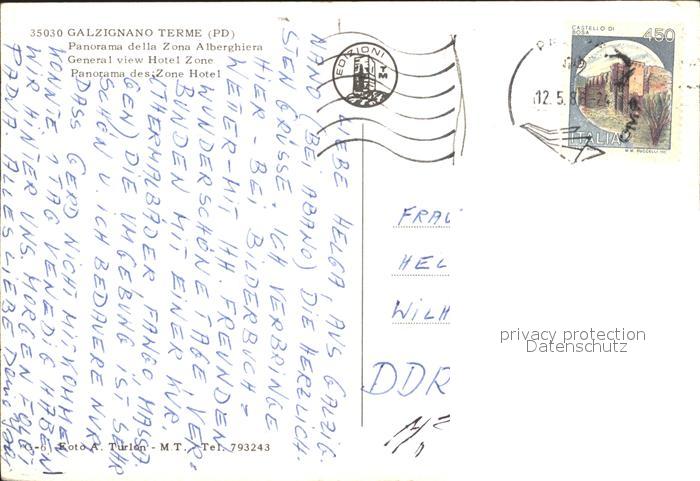 35030 GALZIGNANO TERME (PD)
Panorama della Zona Alberghiera
General view Hotel Zone
Panorama des Zone Hotel
EDIZIONI
TM
CASTELLO DI
ROSA
450
ITALIA
12.5.8
LIEBE HELGA, AUS GALZIG-
NANO (BEI ABANO) DIE HERZLICH-
STEN GRÜSSE. ICH VERBRINGE
HIER - BEI BILDERBUCH-
WETTER - MIT FREUNDEN
WUNDERSCHÖNE TAGE, VER-
BUNDEN MIT EINER KUR,
(THERMALBÄDER, FANGO, MASSA-
GEN) DIE UMGEBUNG IST SEHR
SCHÖN U. ICH BEDAUERE NUR
DASS GERD NICHT MITKOMMEN
KONNTE. 1 TAG VENEDIG HABEN
WIR HINTER UNS. MORGEN FOLGT
PADUA. ALLES LIEBE
FRAU
HEL
WILH
DDR
privacy protection
Datenschutz
G-6 Foto A. Turlon - M T. Tel. 793243